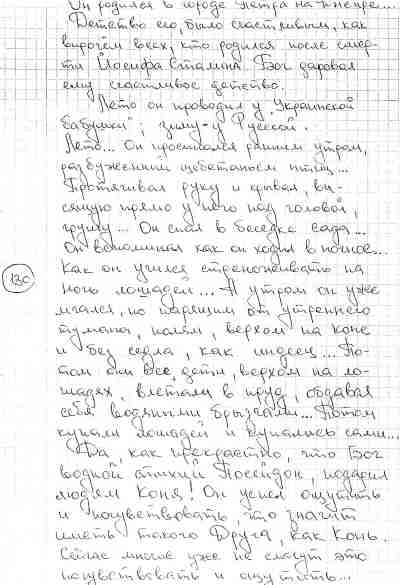 Он родился в городе Петра на Днепре...
Детство его, было счастливым, как
впрочем всех, кто родился после смер-
ти Иосифа Сталина. Бог даровал
ему счастливое детство.
Лето он проводил у „Украинской
бабушки", зиму - у Русской.
Лето... Он просыпался ранним утром,
разбуженный щебетаньем птиц...
Протягивал руку и срывал, ви-
сящую прямо у него над головой,
грушу... Он спал в беседке сада...
Он вспоминал как он ходил в ночное...
Как он учился стреноживать на
130
ночь лошадей... А утром он уже
мчался, по парящим от утреннего
тумана, полям, верхом на коне
и без седла, как индеец... По-
том они все, дети, верхом на ло-
шадях, влетали в пруд, обдавая
себя водяными брызгами... Потом
купали лошадей и купались сами...
Да, как прекрастно, что Бог
водной стихии Посейдон, подарил
людям Коня! Он успел ощутить
и почувствовать, что значит
иметь такого Друга, как Конь.
Сейчас многие уже не смогут это
почувствовать и ощутить...